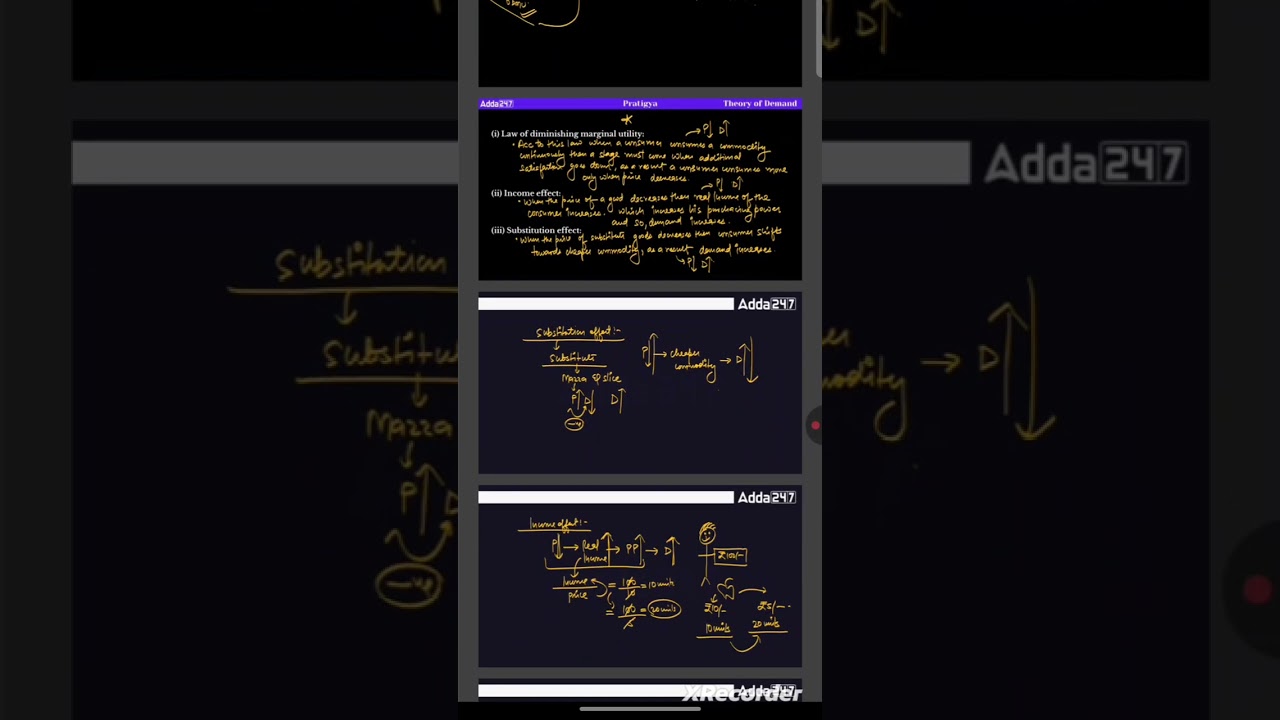 Adda247 Pratigya Theory of Demand
(i) Law of diminishing marginal utility: → P↓ D↑
• Acc to this law when a consumer consumes a commodity
continuously then a stage must come when additional
satisfaction goes down, as a result a consumer consumes more
only when price decreases.
→ P↓ D↑
(ii) Income effect:
• When the price of a good decreases then real income of the
consumer increases. which increases his purchasing power
and so, demand increases.
(iii) Substitution effect:
• When the price of substitute goods decreases then consumer shifts
towards cheaper commodity, as a result demand increases.
→ P↓ D↑
Adda247
Substitution effect:-
Substitute
Mazza & slice
P↑ D↓ D↑
-ve
P → cheaper commodity → D
Adda247
Income effect:-
P↓ → Real Income↑ → PP↑ → D↑
Income / price = 100/10 = 10 units
= 100/5 = 20 units
₹100/-
₹10/- ₹5/-
10 units 20 units
Adda247
XRecorder
Adda247
Substitution
Substitu
Mazza
P↑ D
-ve
modity → D